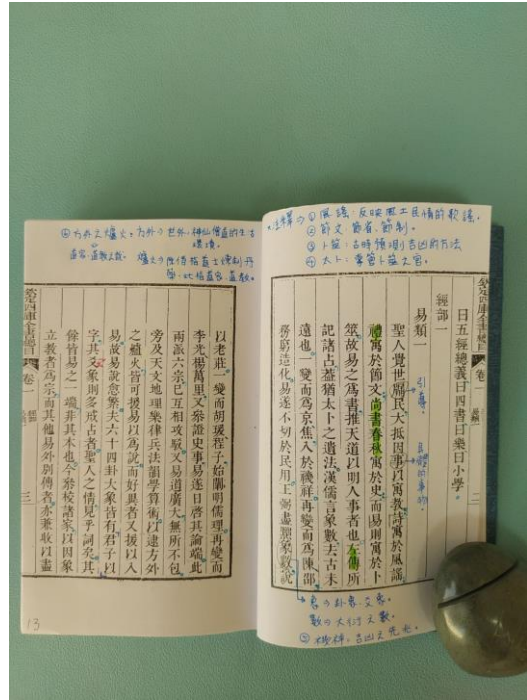 *注釋⇒①風謠:反映風土民情的歌謠。
②節文:節省、節制。
③卜筮:古時預測吉凶的方法
④太卜:掌管卜筮之官。
曰五經總義曰四書曰樂曰小學
經部一
易類一
聖人覺世牖民大抵因事以寓教詩寓於風謠
禮寓於節文尚書春秋寓於史而易則寓於卜
筮故易之為書推天道以明人事者也左傳所
記諸占蓋猶太卜之遺法漢儒言象數去古未
遠也一變而為京焦入於禨祥再變而為陳邵
務窮造化易遂不切於民用王弼盡黜象數說
引導。
具體的事物
象⇒卦象、爻象。
數⇒大衍之數。
⑤禨祥:吉凶之先兆。
欽定四庫全書總目
卷一
經部
易類一
二
⑥方外之爐火:方外⇒世外,神仙僧道的生活
環境。
道家、道教之教。
爐火⇒
以老莊一變而胡瑗程子始闡明儒理再變而
李光楊萬里又參證史事易遂日啓其論端此
兩派六宗已互相攻駁又易道廣大無所不包
旁及天文地理樂律兵法韻學算術以逮方外
之爐火皆可援易以為說而好異者又援以入
易故易說愈繁夫六十四卦大象皆有君子以
字其爻象則多戒占者聖人之情見乎詞矣其
餘皆易之一端非其本也今參校諸家以因象
立教者為宗而其他易外別傳者亦兼收以盡
欽定四庫全書總目
卷一
經部
三
13